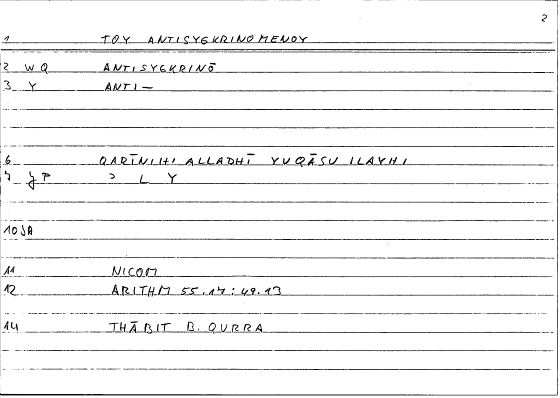 2
1 TOY ANTISYGKRINOMENOY
2 WQ ANTISYGKRINŌ
3 Y ANTI—
6 QARĪNIHI ALLADHĪ YUQĀSU ILAYHI
7 P ʾ L Y
10 JA
11 NICOM
12 ARITHM 55.17:49.13
14 THĀBIT B. QURRA